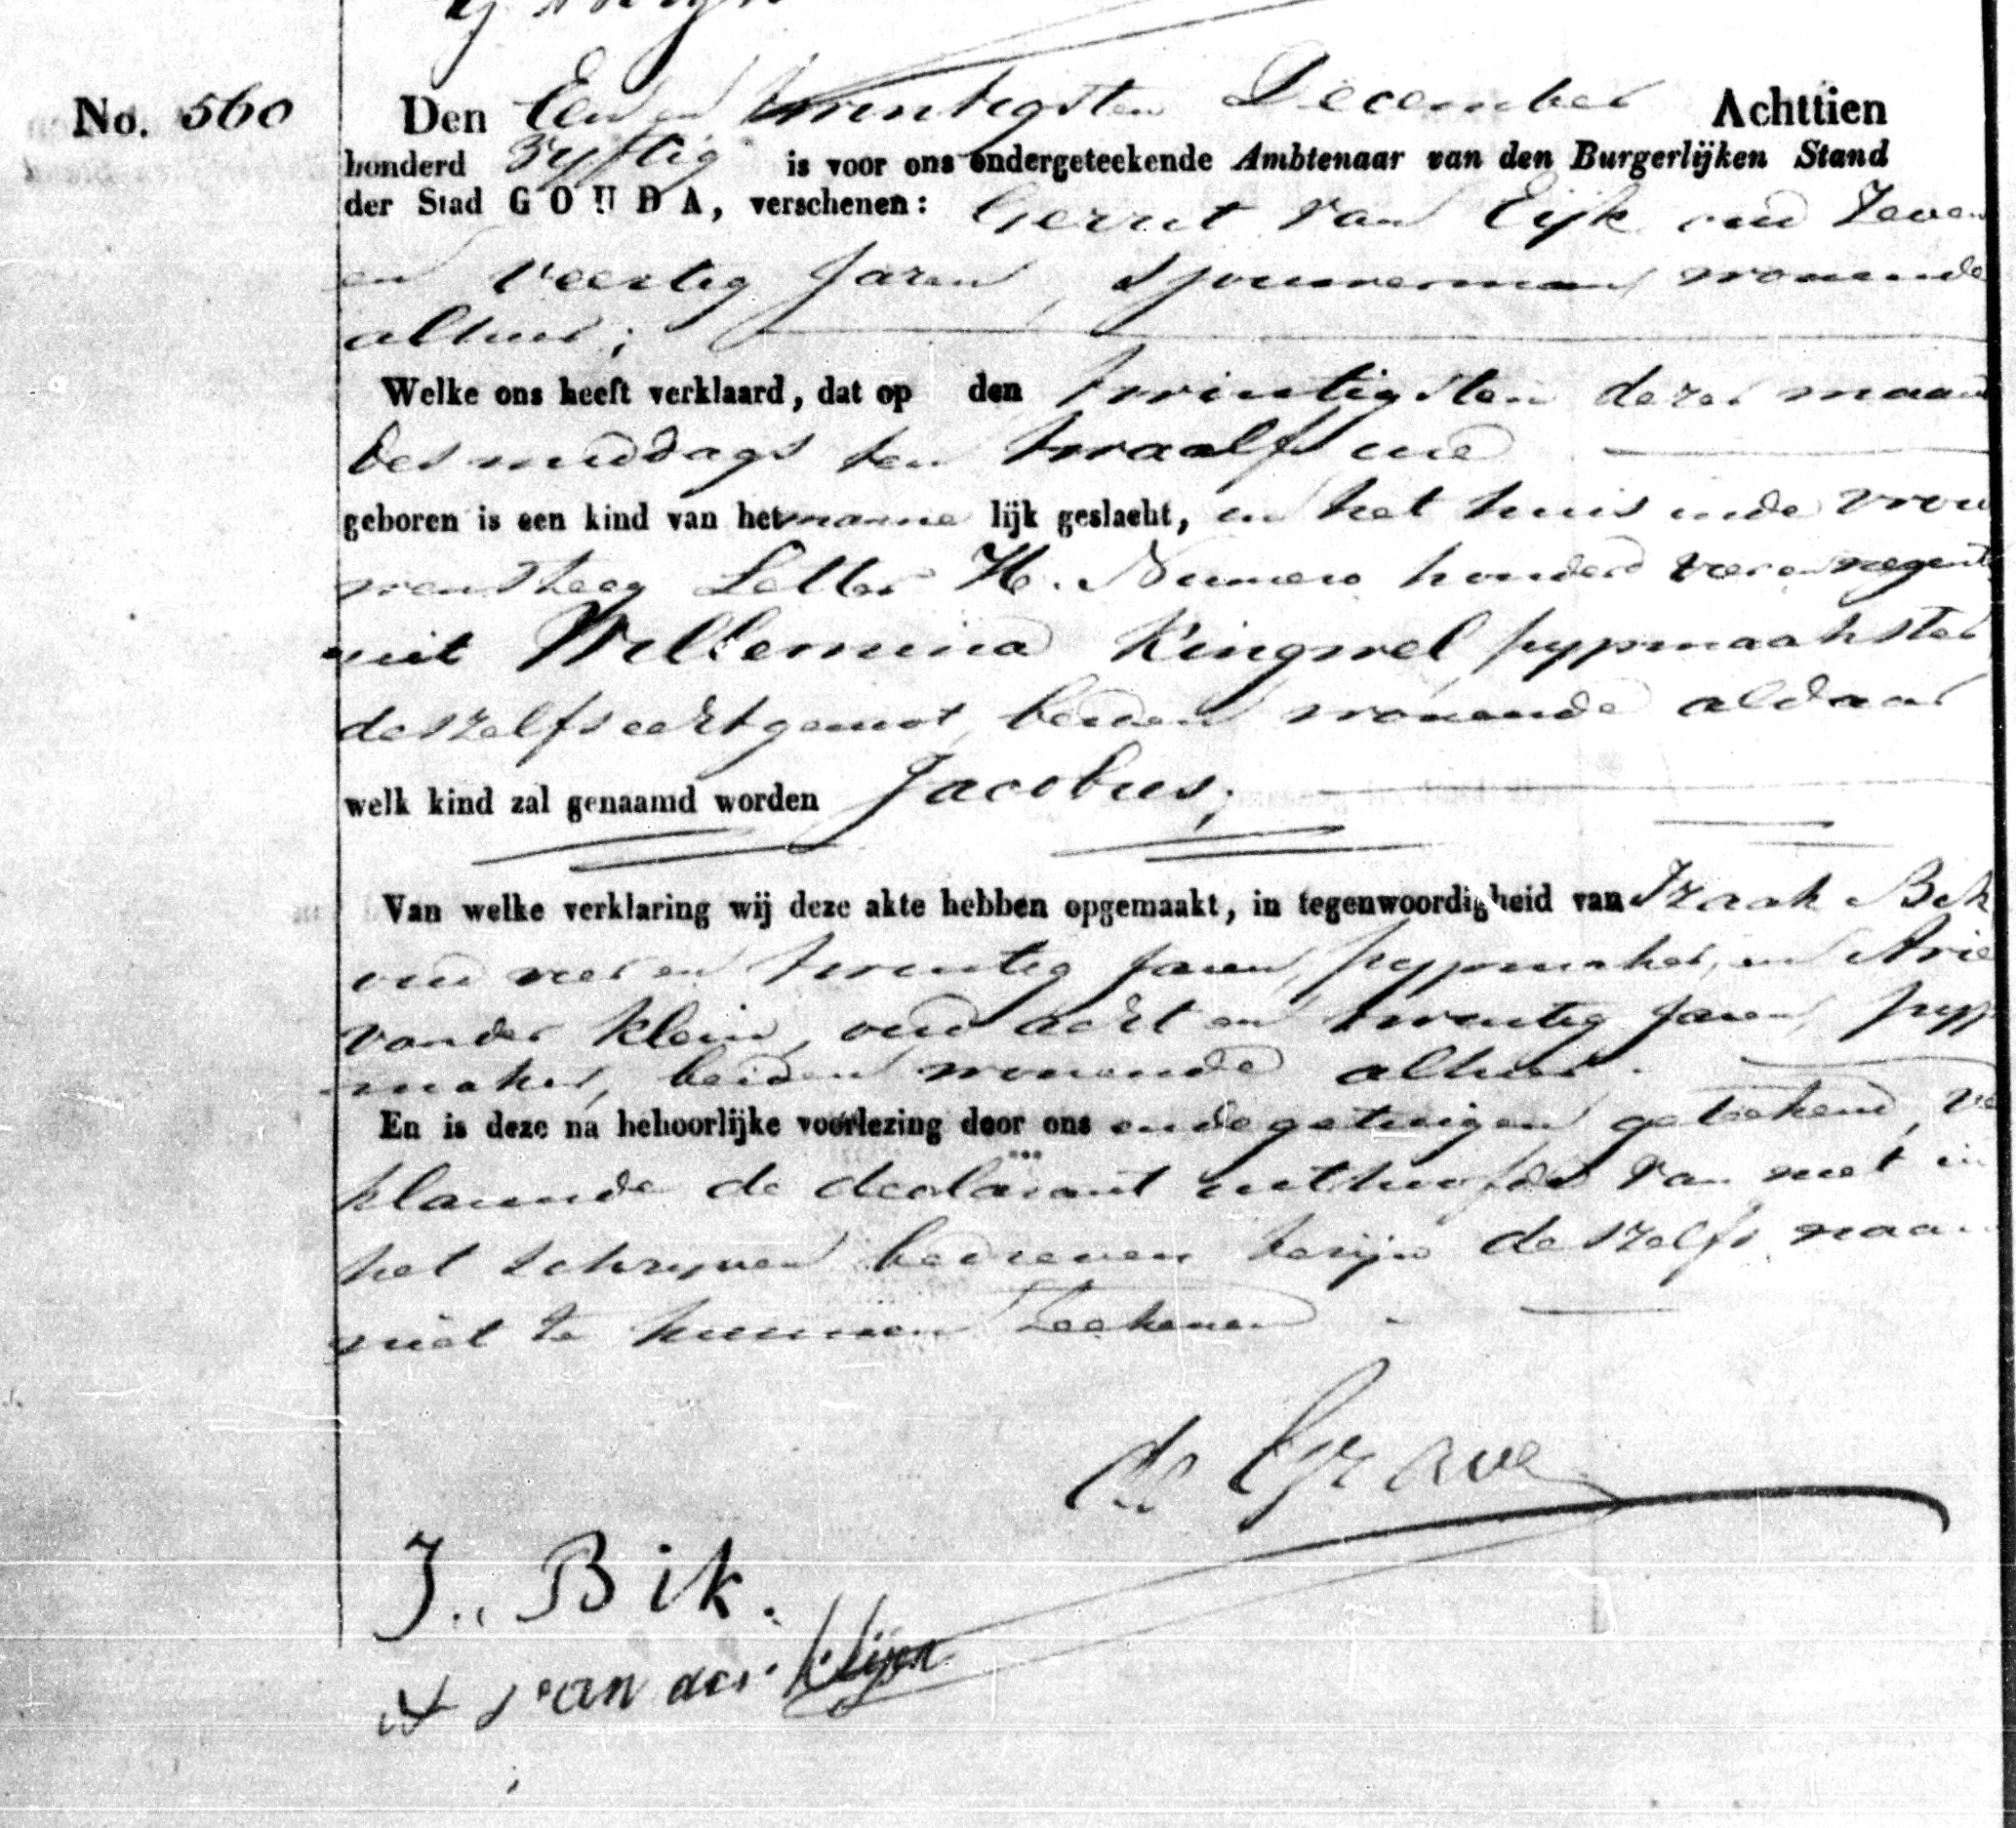 No. 560
Den Een en twintigsten December Achttien
honderd Vyftig is voor ons ondergeteekende Ambtenaar van den Burgerlijken Stand
der Stad GOUDA, verschenen: Gerrit van Eijk oud Zeven
en veertig Jaren, Spouwerman, wonende
alhier;
Welke ons heeft verklaard, dat op den twintigsten dezer maand
des middags ten twaalf ure
geboren is een kind van het manne lijk geslacht, in het huis inde Vrou
wensteeg Letter H. Numero honderd vier en negentig
uit Willemina Ringwel, pypmaakster
deszelfs echtgenoot, beiden wonende aldaar
welk kind zal genaamd worden Jacobus;
Van welke verklaring wij deze akte hebben opgemaakt, in tegenwoordigheid van Izaak Bik
oud vier en twintig Jaren, pypmaker, en Arie
vander Klein, oud acht en twintig Jaren, pyp
maker, beiden wonende alhier.
En is deze na behoorlijke voorlezing door ons en de getuigen geteekend, ver
klarende de declarant uit hoofde van niet in
het schryven bedreven tezijn deszelfs naam
niet te kunnen teekenen.
de Grave
J. Bik.
A van der Klijn